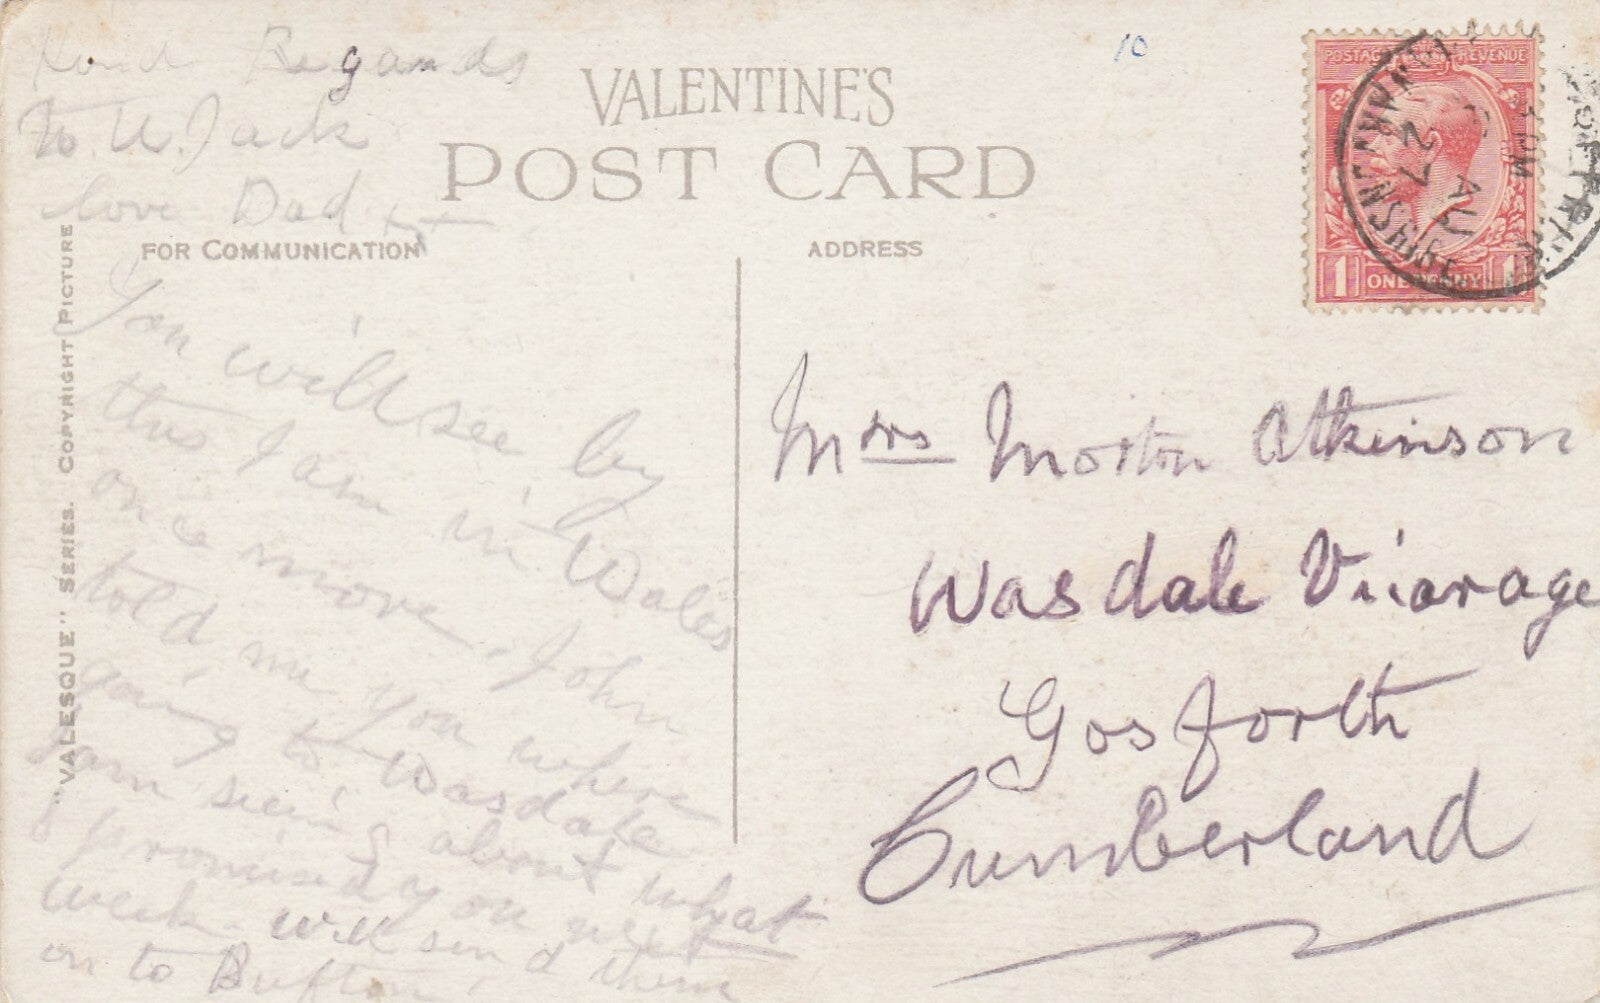 Kind Regards
to U. Jack
love Dad xx
10
VALENTINE'S
POST CARD
FOR COMMUNICATION
ADDRESS
"VALESQUE" SERIES. COPYRIGHT PICTURE
POSTAGE REVENUE
1 ONE PENNY 1
CARMARTHENSHIRE
27 AU
You will see by
this I am in Wales
once more. John
told me you where
going to Wasdale
I am seeing about what
I promised you next
week. Will send them
on to Bufton
Mrs Morton Atkinson
Wasdale Vicarage
Gosforth
Cumberland